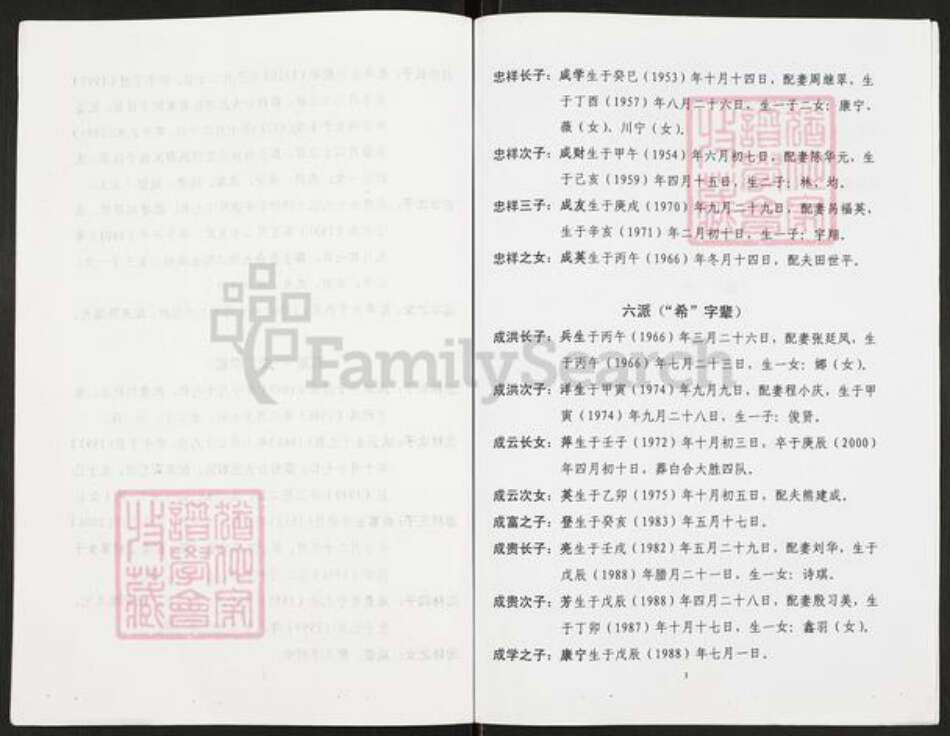 忠祥长子：成学生于癸巳（1953）年十月十四日，配妻周继翠，生
于丁酉（1957）年八月二十六日，生一子二女：康宁、
薇（女）、川宁（女）。
忠祥次子：成财生于甲午（1954）年六月初七日，配妻陈华元，生
于己亥（1959）年四月十五日，生二子：林、均。
忠祥三子：成友生于庚戌（1970）年九月二十九日，配妻吕福英，
生于辛亥（1971）年二月初十日，生一子：宇翔。
忠祥之女：成英生于丙午（1966）年冬月十四日，配夫田世平。
六派（“希”字辈）
成洪长子：兵生于丙午（1966）年三月二十六日，配妻张廷凤，生
于丙午（1966）年七月二十三日，生一女：娜（女）。
成洪次子：洋生于甲寅（1974）年九月九日，配妻程小庆，生于甲
寅（1974）年九月二十八日，生一子：俊贤。
成云长女：萍生于壬子（1972）年十月初三日，卒于庚辰（2000）
年四月初十日，葬白合大胜四队。
成云次女：英生于乙卯（1975）年十月初五日，配夫熊建成。
成富之子：登生于癸亥（1983）年五月十七日。
成贵长子：亮生于壬戌（1982）年五月二十九日，配妻刘华，生于
戊辰（1988）年腊月二十一日，生一女：诗琪。
成贵次子：芳生于戊辰（1988）年四月二十八日，配妻殷习美，生
于丁卯（1987）年十月十七日，生一女：鑫羽（女）。
成学之子：康宁生于戊辰（1988）年七月一日。
FamilySearch